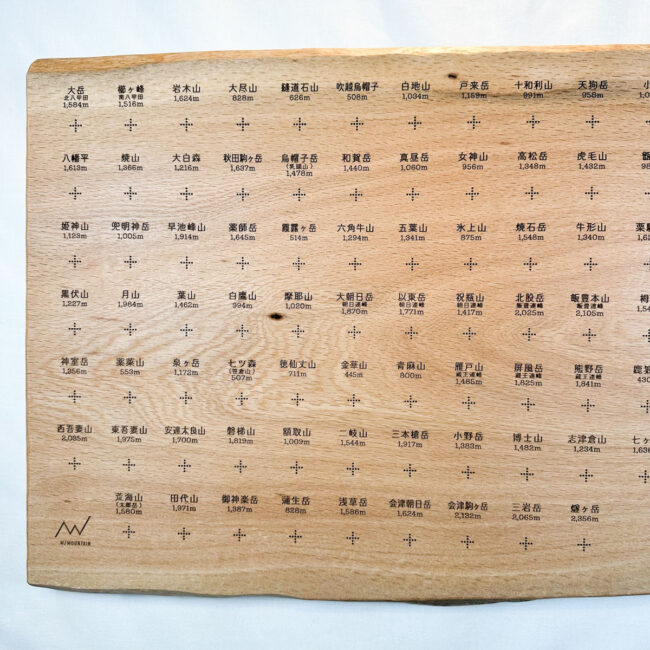 大岳 櫛ヶ峰 岩木山 大尽山 縫道石山 吹越烏帽子 白地山 戸来岳 十和利山 天狗岳 小
北八甲田 南八甲田
1,584m 1,516m 1,624m 828m 626m 508m 1,034m 1,159m 991m 958m
八幡平 焼山 大白森 秋田駒ヶ岳 烏帽子岳 和賀岳 真昼岳 女神山 高松岳 虎毛山
(乳頭山)
1,613m 1,366m 1,216m 1,637m 1,478m 1,440m 1,060m 956m 1,348m 1,432m
姫神山 兜明神岳 早池峰山 薬師岳 霞露ヶ岳 六角牛山 五葉山 氷上山 焼石岳 牛形山 栗
1,123m 1,005m 1,914m 1,645m 514m 1,294m 1,341m 875m 1,548m 1,340m
黒伏山 月山 葉山 白鷹山 摩耶山 大朝日岳 以東岳 祝瓶山 北股岳 飯豊本山
朝日連峰 朝日連峰 朝日連峰 飯豊連峰 飯豊連峰
1,227m 1,984m 1,462m 994m 1,020m 1,870m 1,771m 1,417m 2,025m 2,105m
神室岳 薬菜山 泉ヶ岳 七ツ森 徳仙丈山 金華山 青麻山 雁戸山 屏風岳 熊野岳
(笹倉山) 蔵王連峰 蔵王連峰 蔵王連峰
1,356m 553m 1,172m 507m 711m 445m 800m 1,485m 1,825m 1,841m
西吾妻山 東吾妻山 安達太良山 磐梯山 額取山 二岐山 三本槍岳 小野岳 博士山 志津倉山 七ヶ
2,035m 1,975m 1,700m 1,819m 1,009m 1,544m 1,917m 1,383m 1,482m 1,234m
荒海山 田代山 御神楽岳 蒲生岳 浅草岳 会津朝日岳 会津駒ヶ岳 三岩岳 燧ヶ岳
(太郎岳)
1,580m 1,971m 1,387m 828m 1,586m 1,624m 2,132m 2,065m 2,356m
MJMOUNTAIN